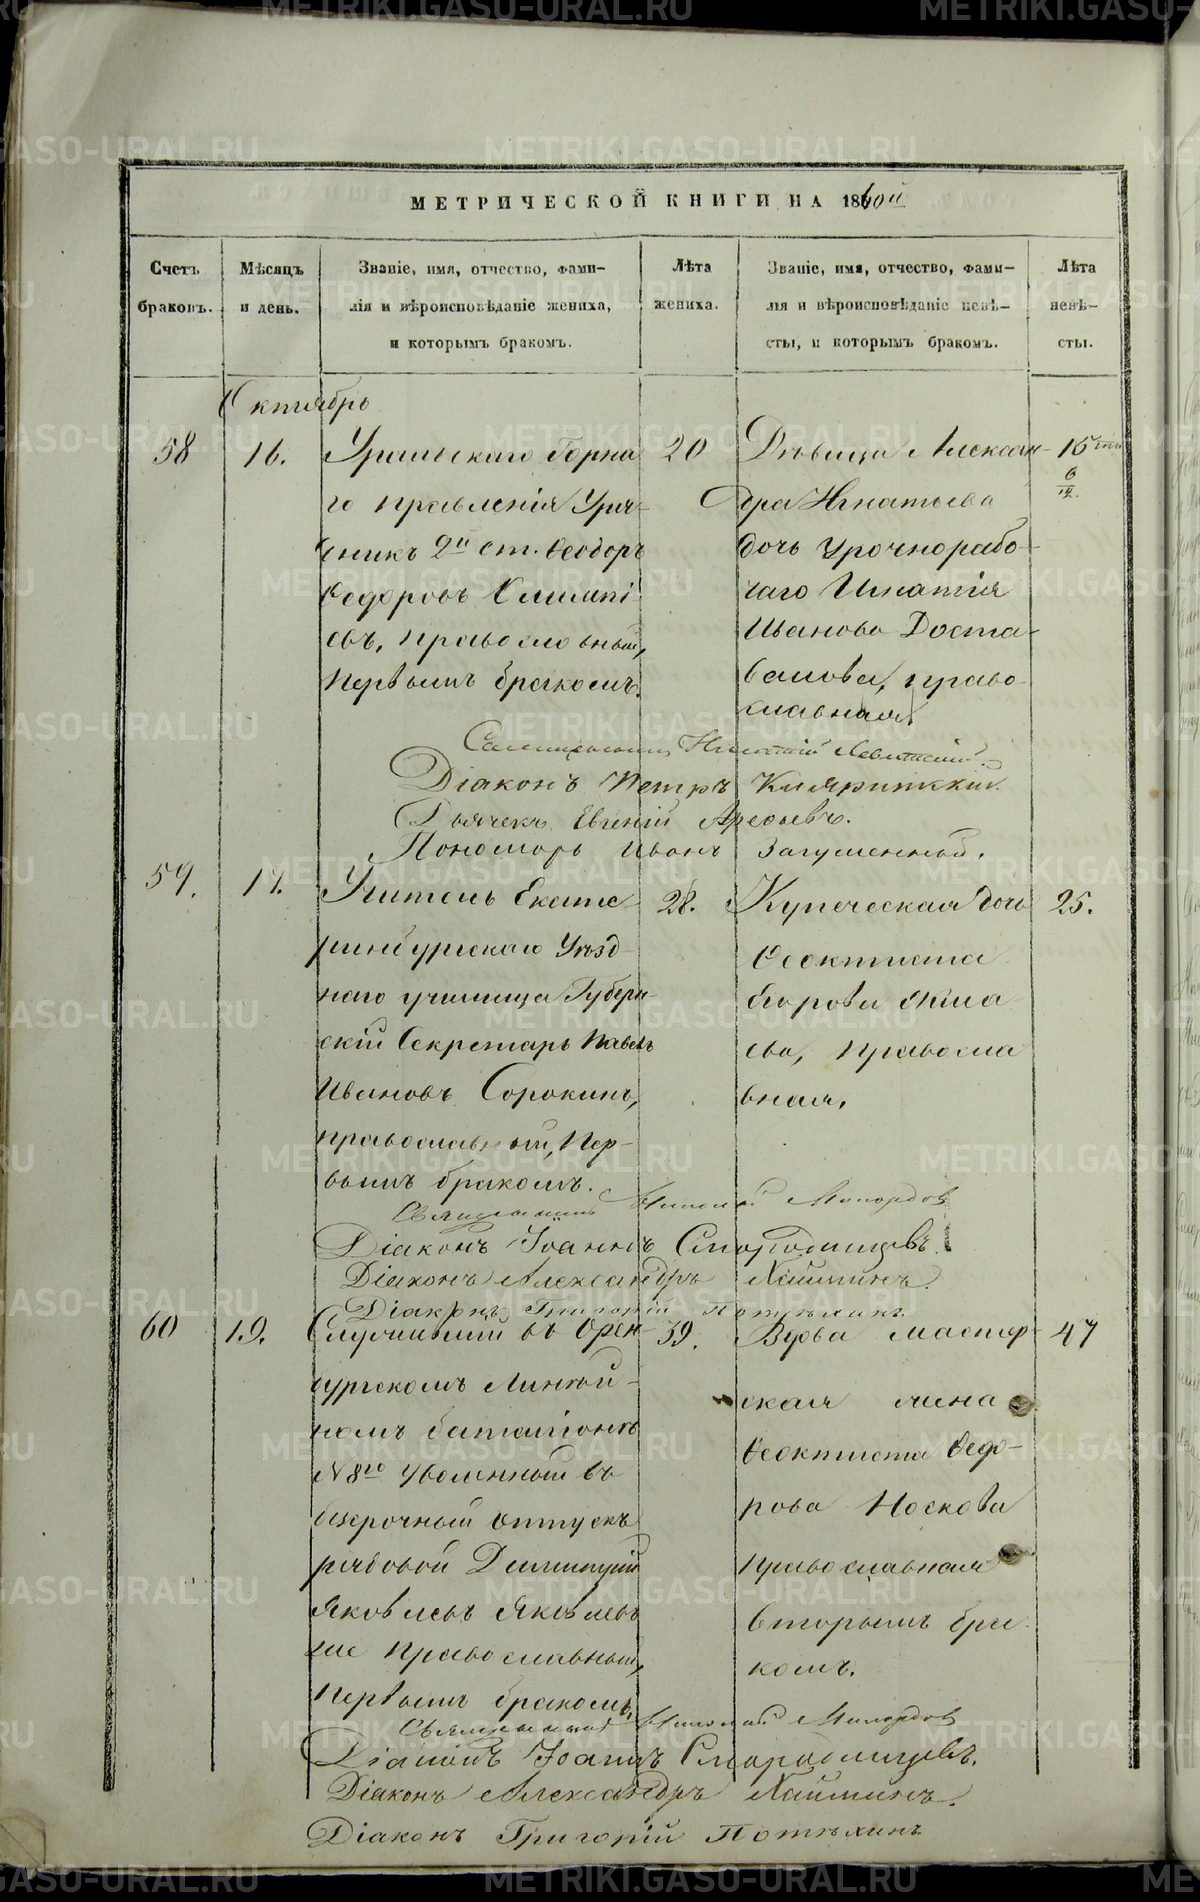 МЕТРИЧЕСКОЙ КНИГИ НА 1860й
Счетъ браковъ.
Мѣсяцъ и день.
Званіе, имя, отчество, фами-
лія и вѣроисповѣданіе жениха,
и которымъ бракомъ.
Лѣта жениха.
Званіе, имя, отчество, фами-
лія и вѣроисповѣданіе невѣ-
сты, и которымъ бракомъ.
Лѣта невѣ-
сты.
Октябрь
58
16.
Уральскаго Горна
го правленія Уряд-
никъ 2й ст. Ѳеодоръ
Ѳедоровъ
евъ, православный,
Первымъ бракомъ.
20
Дѣвица Алексан-
дра Игнатьева
дочь урочнорабо-
чаго Игнатія
Иванова Доста-
валова, право
славная.
16
6/12.
Священникъ Левитскій.
Діаконъ Петръ
Дьячекъ Евгеній Арефьевъ.
Пономарь Иванъ
59.
17.
Учитель Екате
ринбургскаго Уѣзд
наго училища Губерн-
скій Секретарь Павелъ
Ивановъ Сорокинъ,
православный, Пер-
вымъ бракомъ.
28.
Купеческая дочь
Ѳеоктиста
Егорова
ева, Правосла
вная.
25.
Священникъ Николай Милордов
Діаконъ Іоаннъ Смородинцевъ.
Діаконъ Александръ Хайминъ.
Діаконъ Григорій Потѣхинъ.
60
19.
Служившій въ Орен-
бургскомъ Линей-
номъ баталіонѣ
№ 8го уволенный въ
безсрочный отпускъ
рядовой Димитрій
Яковлевъ Яковлевъ
же Православный,
Первымъ бракомъ.
39.
Вдова мастер-
ская жена
Ѳеоктиста Ѳедо-
рова Носкова
православная
Вторымъ бра
комъ.
47
Священникъ Николай Милордов
Діаконъ Іоаннъ Смородинцевъ.
Діаконъ Александръ Хайминъ.
Діаконъ Григорій Потѣхинъ
METRIKI.GASO-URAL.RU